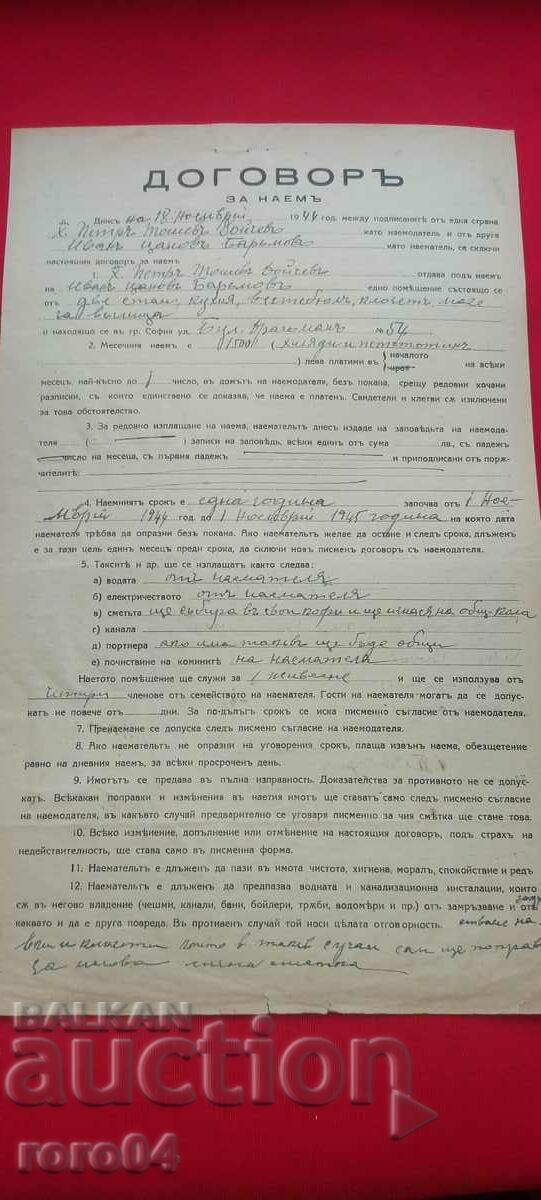 ДОГОВОРЪ
ЗА НАЕМЪ
Днесъ на 18 Ноемврий 1944 год. между подписанитѣ отъ една страна
Х. Петръ Тошевъ Бойчевъ като наемодатель и отъ друга
Иванъ Цановъ Баръмовъ като наематель, се сключи
настоящия договоръ за наемъ
1. Х. Петръ Тошевъ Бойчевъ отдава подъ наемъ
на Иванъ Цановъ Баръмовъ едно помѣщение състояще се
отъ две стаи, кухня, вестебюлъ, клозетъ, мазе
за
и находящо се въ гр. София ул. Бул. Драгоманъ № 54
2. Месечния наемъ е 1500 (хиляди и петстотинъ
) лева платими въ началото края на всѣки
месецъ, най-късно до 1 число, въ домътъ на наемодателя, безъ покана, срещу редовни кочани
разписки, съ които единствено се доказва, че наема е платенъ. Свидетели и клетви сѫ изключени
за това обстоятелство.
3. За редовно изплащане на наема, наемательтъ днесъ издаде на заповѣдьта на наемода-
теля ( ) записи на заповѣдь, всѣки единъ отъ сума лв., съ падежъ
число на месеца, съ първия падежъ и приподписани отъ порѫ-
чителитѣ:
4. Наемниятъ срокъ е една година започва отъ 1 Ное-
мврий 1944 год. до 1 Ноемврий 1945 година на която дата
наемательтъ трѣбва да опразни безъ покана. Ако наемательтъ желае да остане и следъ срока, длъженъ
е за тази цель единъ месецъ преди срока, да сключи новъ писменъ договоръ съ наемодателя.
5. Таксите и др. ще се изплащатъ както следва:
а) водата отъ наемателя
б) електричеството отъ наемателя
в) сметьта ще събира въ свои кофи и ще изнася на общ. кола
с) канала
д) портиера ако има такъвъ ще бѫде общи
е) почистване на коминитѣ на наемателя
Наетото помѣщение ще служи за живѣяне и ще се използува отъ
четири членове отъ семейството на наемателя. Гости на наемателя могатъ да се допус-
катъ не повече отъ дни. За по-дълъгъ срокъ се иска писмено съгласие отъ наемодателя.
7. Пренаемане се допуска следъ писмено съгласие на наемодателя.
8. Ако наемательтъ не опразни на уговорения срокъ, плаща извънъ наема, обезщетение
равно на дневния наемъ, за всѣки просроченъ день.
9. Имотътъ се предава въ пълна изправность. Доказателства за противното не се допус-
катъ. Всѣкакви поправки и измѣнения въ наетия имотъ ще ставатъ само следъ писмено съгласие
на наемодателя, въ какъвто случай предварително се уговаря писменно за чия смѣтка ще стане това.
10. Всѣко измѣнение, допълнение или отмѣнение на настоящия договоръ, подъ страхъ на
недействителность, ще става само въ писменна форма.
11. Наемательтъ е длъженъ да пази въ имота чистота, хигиена, моралъ, спокойствие и редъ
12. Наемательтъ е длъженъ да предпазва водната и канализационна инсталации, които
сѫ въ негово владение (чешми, канали, бани, бойлери, трѫби, водомѣри и пр.) отъ замръзване и отъ
каквато и да е друга повреда. Въ противенъ случай той носи цѣлата отговорность.
който въ такъв случаи самъ ще поправя
за негова смѣтка
BALKAN
auction
roro04